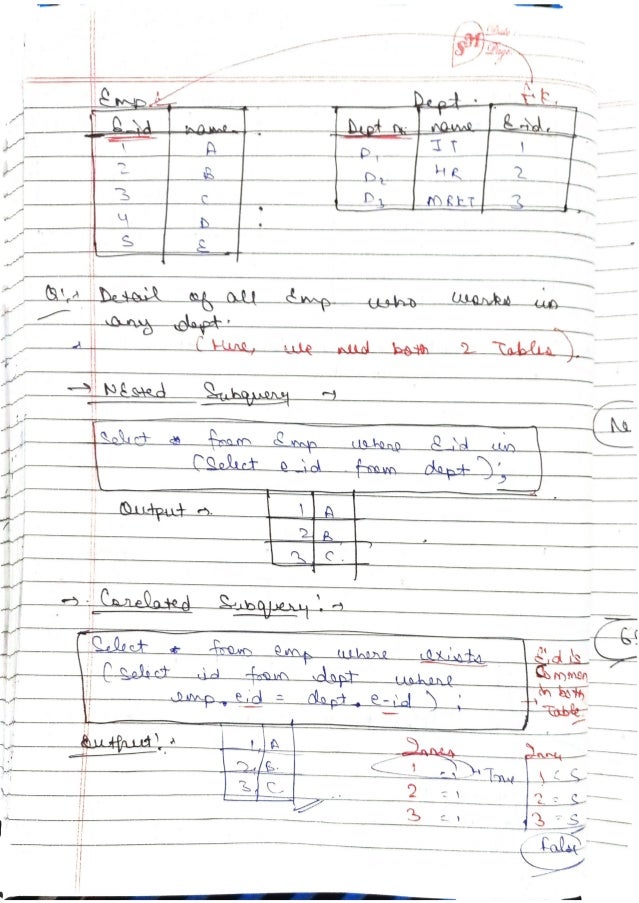 SM Date
Page
Emp. Dept. F.K.
E-id name. Dept no. name E-id.
1 A D1 IT 1
2 B D2 HR 2
3 C D3 MRKT 3
4 D
5 E
Q1. Detail of all Emp who works in
any dept.
(Here, we need both 2 Tables).
→ Nested Subquery →
Ne
Select * from Emp where Eid in
(Select e-id from dept);
Output → 1 A
2 B.
3 C.
→ Corelated Subquery: →
Select * from emp where exists
(Select id from dept where
emp.eid = dept.e-id);
Eid is
Common
in both
→ Table
Output: 1, A
2, B.
3, C.
Inner Inner
1 = 1 True 1 = 5
2 = 1 2 = 5
3 = 1 3 = 5
False